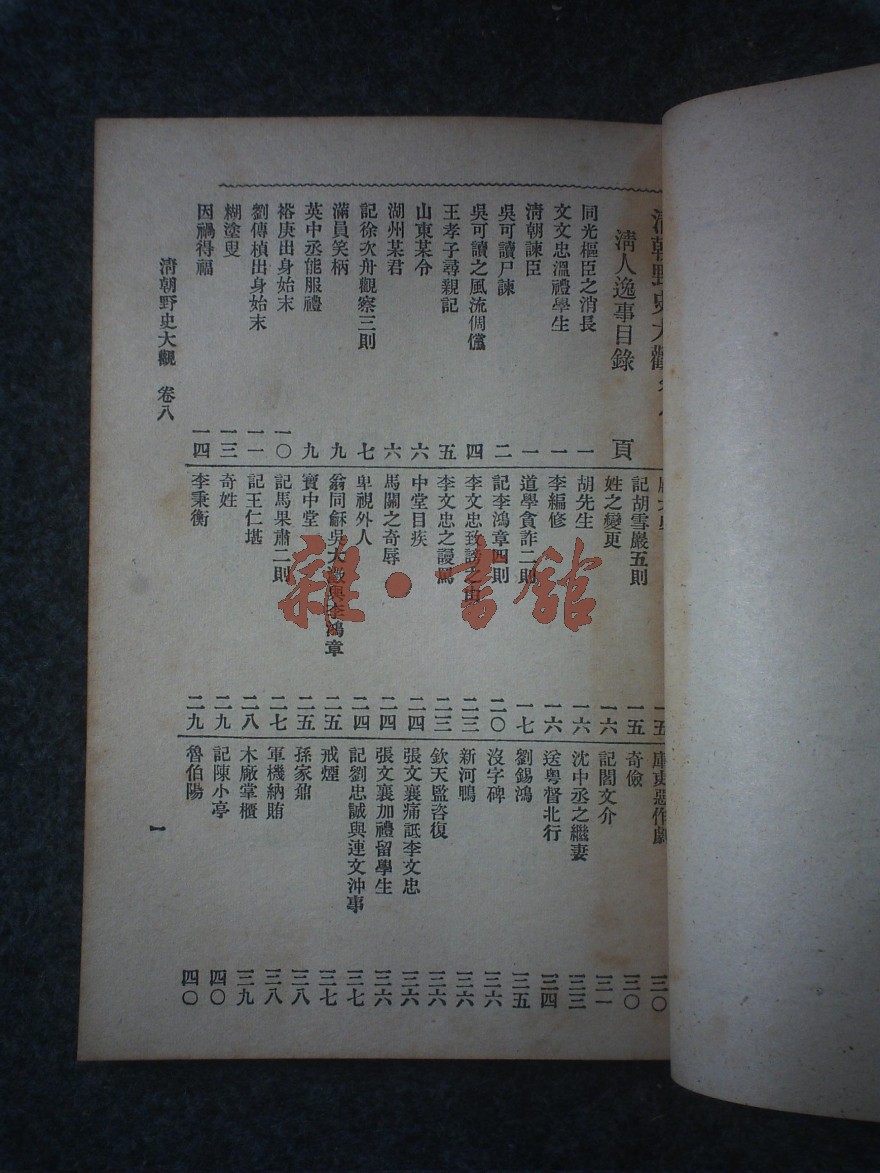 清朝野史大觀
清人逸事目錄 頁
同光樞臣之消長 一
文文忠溫禮學生 一
清朝諫臣 一
吳可讀尸諫 二
吳可讀之風流倜儻 四
王孝子尋親記 五
山東某令 六
湖州某君 六
記徐次舟觀察三則 七
滿員笑柄 九
英中丞能服禮 九
裕庚出身始末 一〇
劉傳楨出身始末 一一
糊塗叟 一三
因禍得福 一四
一五
記胡雪巖五則 一五
姓之變更 一六
胡先生 一六
李編修 一六
道學貪詐二則 一七
記李鴻章四則 二〇
李文忠致謗之由 二三
李文忠之謾罵 二三
中堂目疾 二四
馬關之奇辱 二四
卑視外人 二四
翁同龢吳大澂與李鴻章 二五
寶中堂 二五
記馬果肅二則 二七
記王仁堪 二八
奇姓 二九
李秉衡 二九
庫吏惡作劇 三〇
奇儉 三〇
記閻文介 三一
沈中丞之繼妻 三三
送粵督北行 三四
劉錫鴻 三五
沒字碑 三六
新河鴨 三六
欽天監咨復 三六
張文襄痛詆李文忠 三六
張文襄加禮留學生 三六
記劉忠誠與連文沖事 三七
戒煙 三七
孫家鼐 三八
軍機納賄 三八
木廠掌櫃 三九
記陳小亭 四〇
魯伯陽 四〇
清朝野史大觀 卷八
一
雜·書館